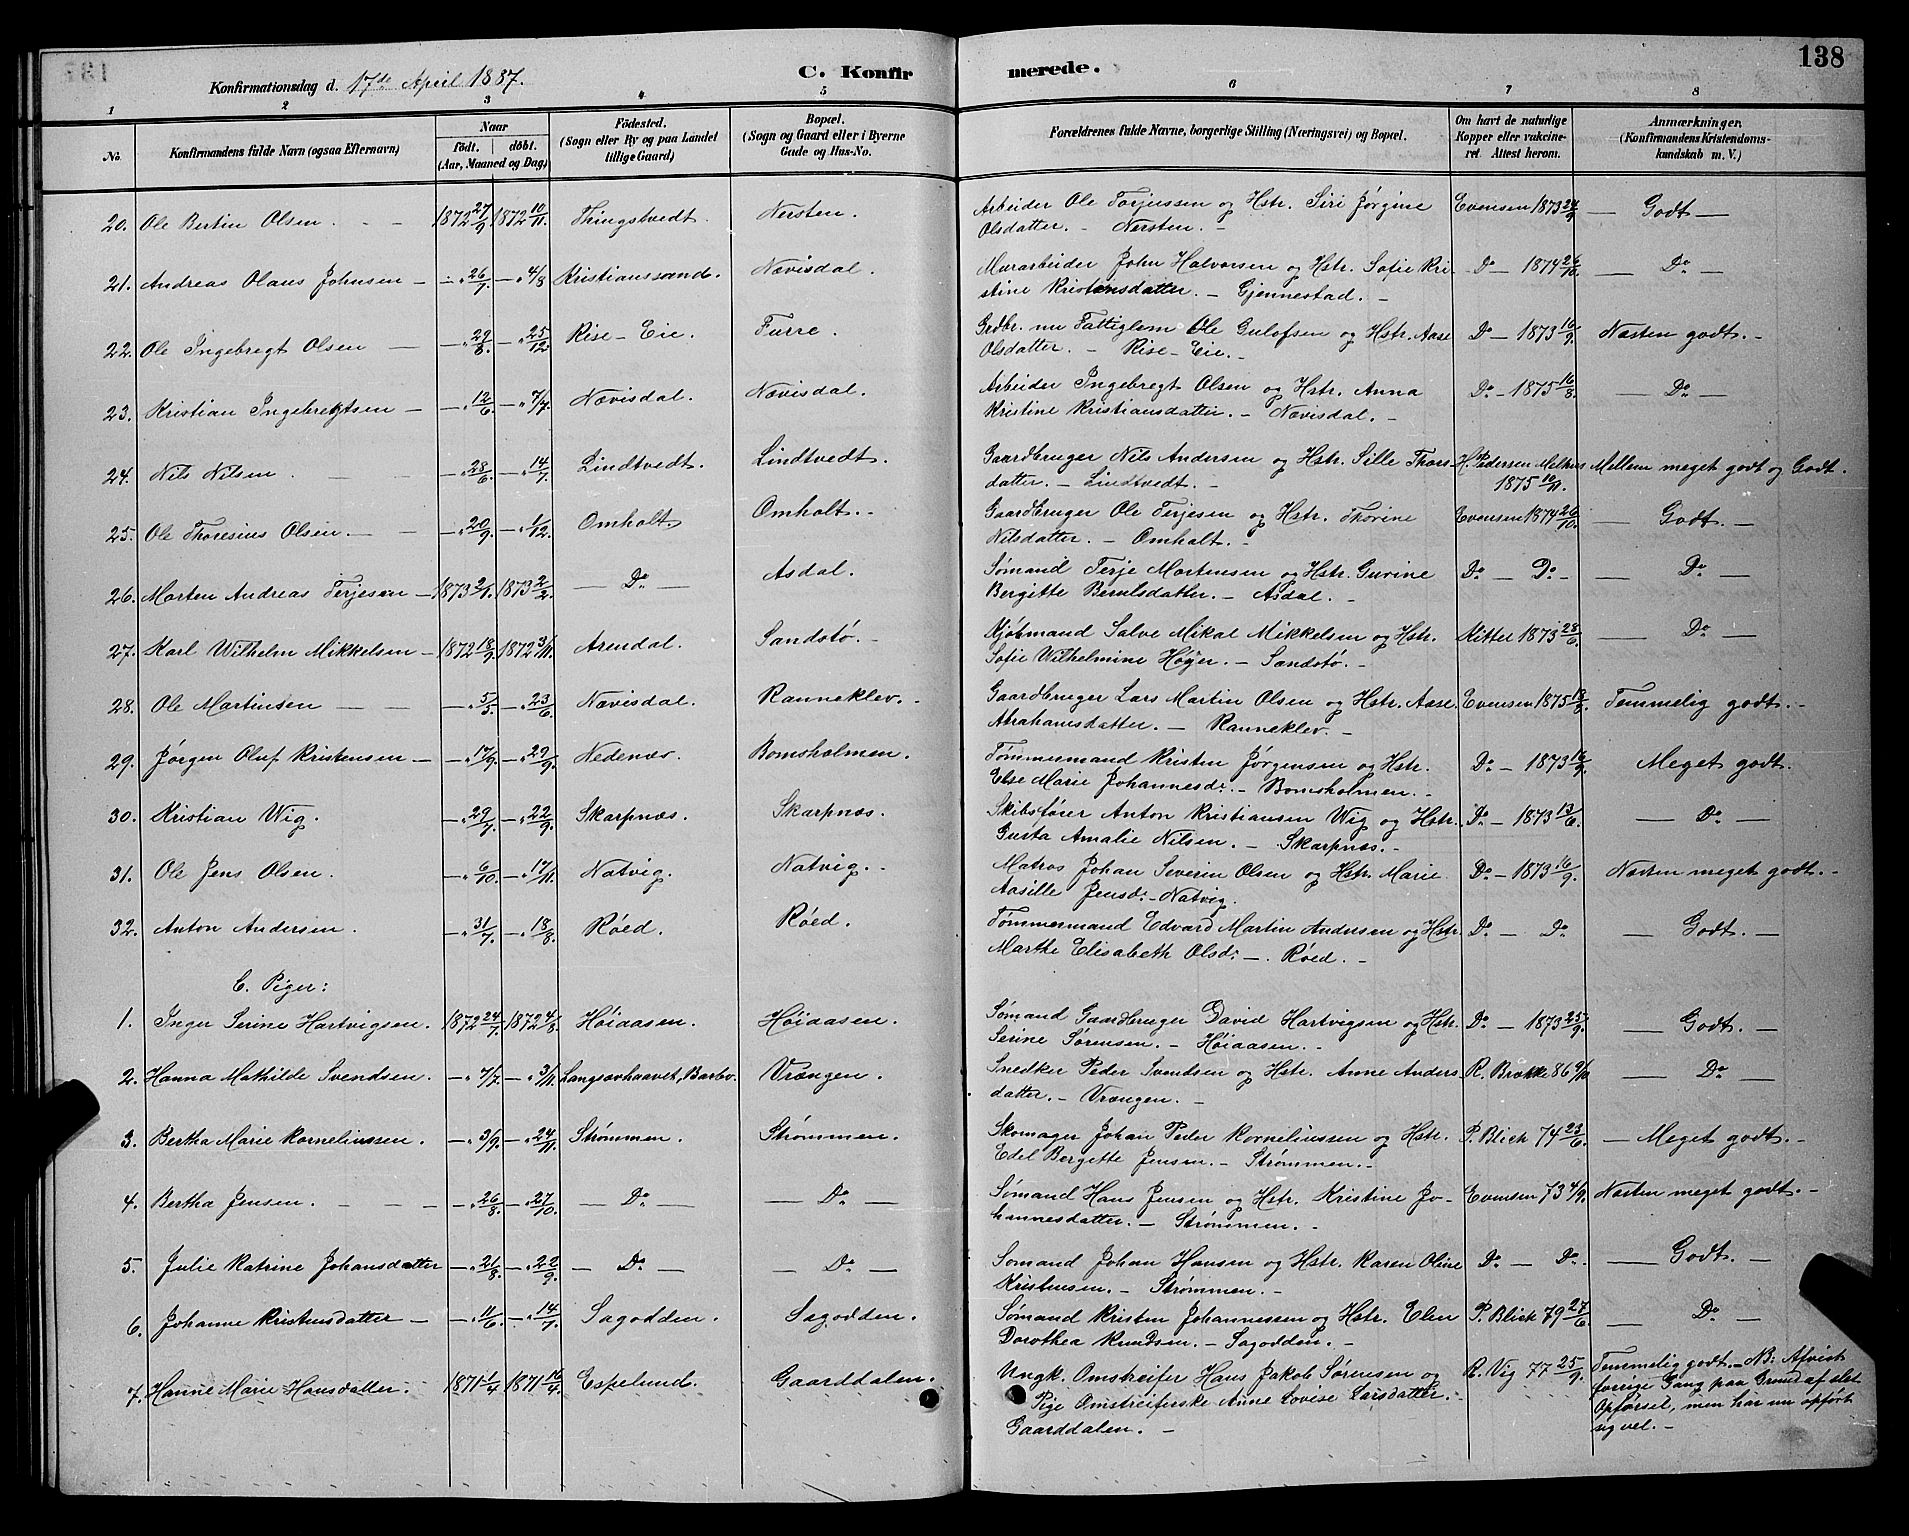 138
Konfirmationsdag d. 17de April 1887.
C. Konfir merede.
1 2 3 4 5 6 7 8
No. Konfirmandens fulde Navn (ogsaa Efternavn) Naar født. døbt. (Aar, Maaned og Dag) Fødested. (Sogn eller By og paa Landet tillige Gaard) Bopæl. (Sogn og Gaard eller i Byerne Gade og Hus-No. Forældrenes fulde Navne, borgerlige Stilling (Næringsvei) og Bopæl. Om havt de naturlige Kopper eller vakcineret. Attest herom. Anmærkninger. (Konfirmandens Kristendomskundskab m. V.)
20. Ole Bertin Olsen. - - 1872 27/9 1872 10/11. Thingstvedt. Nersten. Arbeider Ole Torjussen og Hstr. Siri Jørgine Evensen 1873 24/9 — Godt —
Olsdatter. - Nersten. -
21. Andreas Olaus Johnsen — —" 26/7 —" 4/8 Kristianssand. Nævisdal. Murarbeider John Halvorsen og Hstr. Sofie Kri- Do — 1874 26/10. — Do —
stine Kristensdatter. — Gjennestad. -
22. Ole Ingebregt Olsen — —" 29/8. —" 25/12 Rise - Eie. Furre. Grdbr. nu Fattiglem Ole Gulofsen og Hstr. Aase Do — 1873 16/9. Næsten godt. -
Olsdatter. - Rise - Eie. -
23. Kristian Ingebregtsen — —" 12/6 —" 7/7. Nævisdal. Nævisdal. Arbeider Ingebregt Olsen og Hstr. Anna Do - 1875 16/8. — Do —
Kristine Kristiansdatter. - Nævisdal. -
24. Nils Nilsen. - - —" 28/6 —" 14/7 Lindtvedt. Lindtvedt. Gaardbruger Nils Andersen og Hstr. Sille Thors- H. Pedersen Melhus Mellem meget godt og Godt.
datter. - Lindtvedt. - 1875 10/11.
25. Ole Thoresius Olsen. — —" 20/9 —" 1/12 Omholt Omholt. - Gaardbruger Ole Terjesen og Hstr. Thorine Evensen 1874 26/10. — Godt. -
Nilsdatter. - Omholt. -
26. Morten Andreas Terjesen — 1873 2/1. 1873 2/2 — Do — Asdal. Sømand Terje Mortensen og Hstr. Gurine Do — Do - — Do —
Bergitte Berulsdatter. - Asdal. -
27. Karl Wilhelm Mikkelsen — 1872 18/9 1872 3/11. Arendal. Sandstø. - Kjøbmand Salve Mikal Mikkelsen og Hstr. Kittel 1873 28/6. — Do —
Sofie Wilhelmine Høyer. - Sandstø. -
28. Ole Martinsen — — —" 5/5 —" 23/6 Nævisdal. Ranneklev. - Gaardbruger Lars Martin Olsen og Hstr. Aase Evensen 1875 18/8 Temmelig godt. -
Abrahamsdatter. - Ranneklev. -
29. Jørgen Oluf Kristensen — —" 17/9. —" 29/9 Nedenæs. Bomsholmen. Tømmermand Kristen Jørgensen og Hstr. Do — 1873 16/9. Meget godt.
Else Marie Johannesd: - Bomsholmen. -
30. Kristian Wig. —" 29/7 —" 22/9. Skarpnæs. Skarpnæs. Skibsfører Anton Kristiansen Wig og Hstr. Do — 1873 13/6. — Do —
Gusta Amalie Nilsen. - Skarpnæs. -
31. Ole Jens Olsen. —" 6/10. —" 17/11. Natvig. Natvig. - Matros Johan Severin Olsen og Hstr. Marie Do — 1873 16/9. Næsten meget godt. -
Aasille Jensd: - Natvig.
32. Anton Andersen. —" 31/7. —" 18/8 Røed. Røed. Tømmermand Edvard Martin Andersen og Hstr. Do — Do — Godt. —
Marthe Elisabeth Olsd: -. Røed. -
C. Piger:
1. Inger Serine Hartvigsen. 1872 24/7. 1872 4/8. Høiaasen. Høiaasen. Sømand Gaardbruger David Hartvigsen og Hstr. Do — 1873 25/9. — Godt. —
Serine Sørensen. - Høiaasen. -
2. Hanna Mathilde Svendsen. —" 7/7. —" 3/11. Langsævhaavet, Barbo. Vrængen. Snedker Peder Svendsen og Hstr. Anne Anders- R. Brække 86 9/10. — Do —
datter. - Vrængen. -
3. Bertha Marie Korneliussen. —" 3/9. —" 24/11. Strømmen. Strømmen. Skomager Johan Peder Korneliussen og Hstr. P. Blich 74 23/6. — Meget godt. -
Edel Bergitte Jensen. - Strømmen. -
4. Bertha Jensen. - - - —" 26/8. —" 27/10. — Do — — Do — Sømand Hans Jensen og Hstr. Kristine Jo- Evensen 73 4/9. Næsten meget godt. -
hannesdatter. - Strømmen. -
5. Julie Katrine Johansdatter —" 21/8. —" 22/9. — Do — — Do — Sømand Johan Hansen og Hstr. Karen Oline Do — Do. — Godt. —
Kristensen. - Strømmen. -
6. Johanne Kristensdatter — —" 11/6 —" 14/7. Sagodden. Sagodden. Sømand Kristen Johannessen og Hstr. Elen P. Blich 79 27/6. — Do —
Dorothea Knudsen. - Sagodden. -
7. Hanne Marie Hansdatter. 1871 1/4 1871 16/4. Espelund. Gaarddalen. Ungk. Omstreifer Hans Jakob Sørensen og R. Vig 77 25/9. Temmelig godt. - NB: Afvist
Pige Omstreiferske Anne Lovise Larsdatter. - forrige Gang paa Grund af slet
Gaarddalen. - Opførsel, men har nu opført
sig vel. -